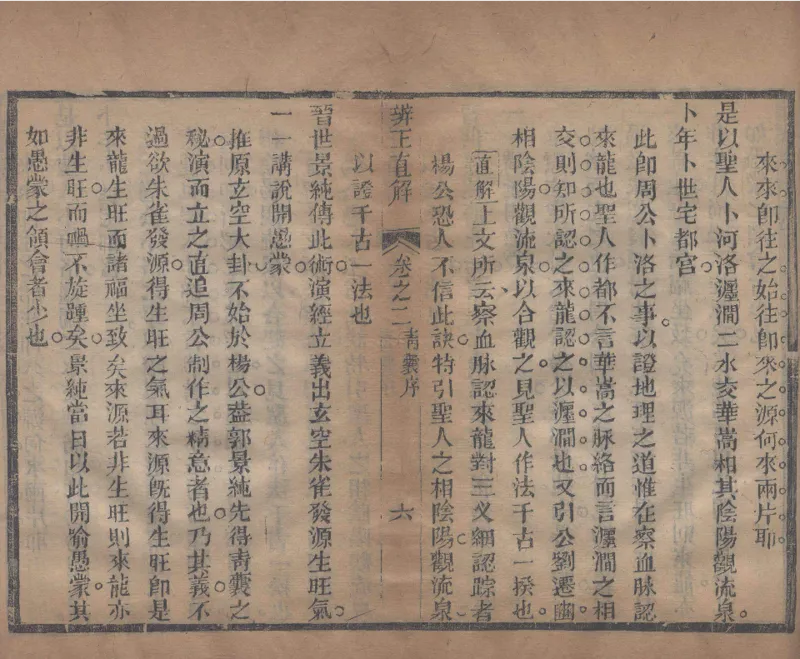 來來卽往之始往卽來之源何來兩片耶
是以聖人卜河洛瀍澗二水交華嵩相其陰陽觀流泉
卜年卜世宅都宮
此卽周公卜洛之事以證地理之道惟在察血脉認
來龍也聖人作都不言華嵩之脉絡而言瀍澗之相
交則知所認之來龍認之以瀍澗也又引公劉遷豳
相陰陽觀流泉以合觀之見聖人作法千古一揆也
直解上文所云察血脉認來龍對三义細認踪者
楊公恐人不信此訣特引聖人之相陰陽觀流泉
以證千古一法也
辨正直解 卷之二 靑囊序 六
晉世景純傳此術演經立義出玄空朱雀發源生旺氣
一一講說開愚蒙
推原玄空大卦不始於楊公葢郭景純先得靑囊之
秘演而立之直追周公制作之精意者也乃其義不
過欲朱雀發源得生旺之氣耳來源旣得生旺卽是
來龍生旺而諸福坐致矣來源若非生旺則來龍亦
非生旺而禍不旋踵矣景純當日以此開喻愚蒙其
如愚蒙之領會者少也